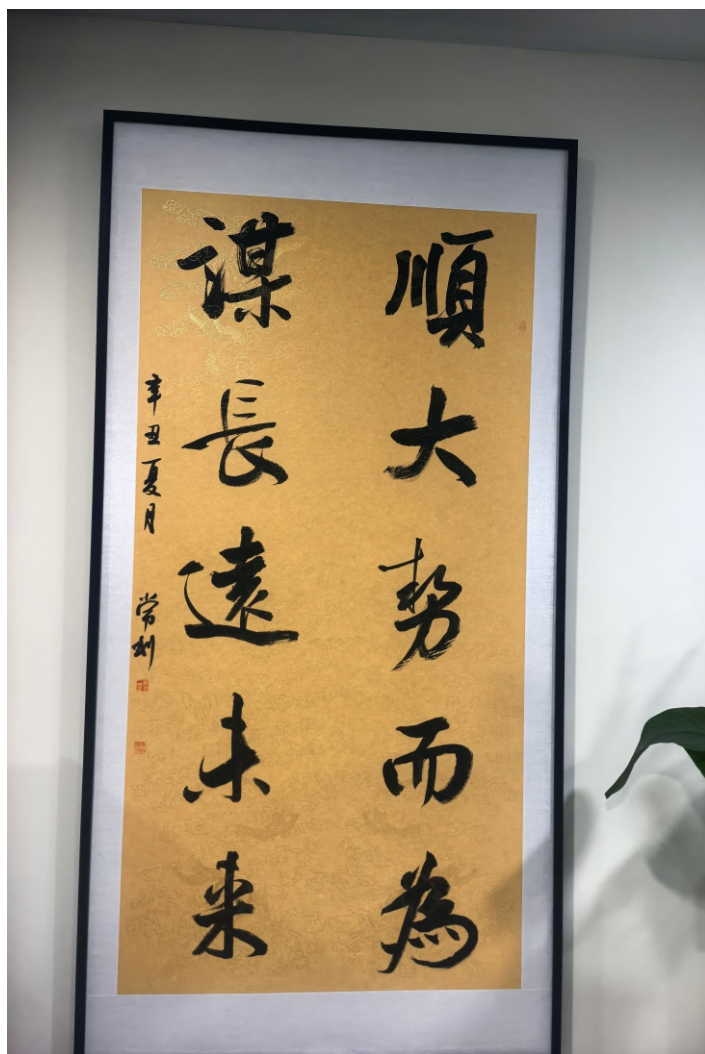 順大勢而為
謀長遠未来
辛丑夏月 常利